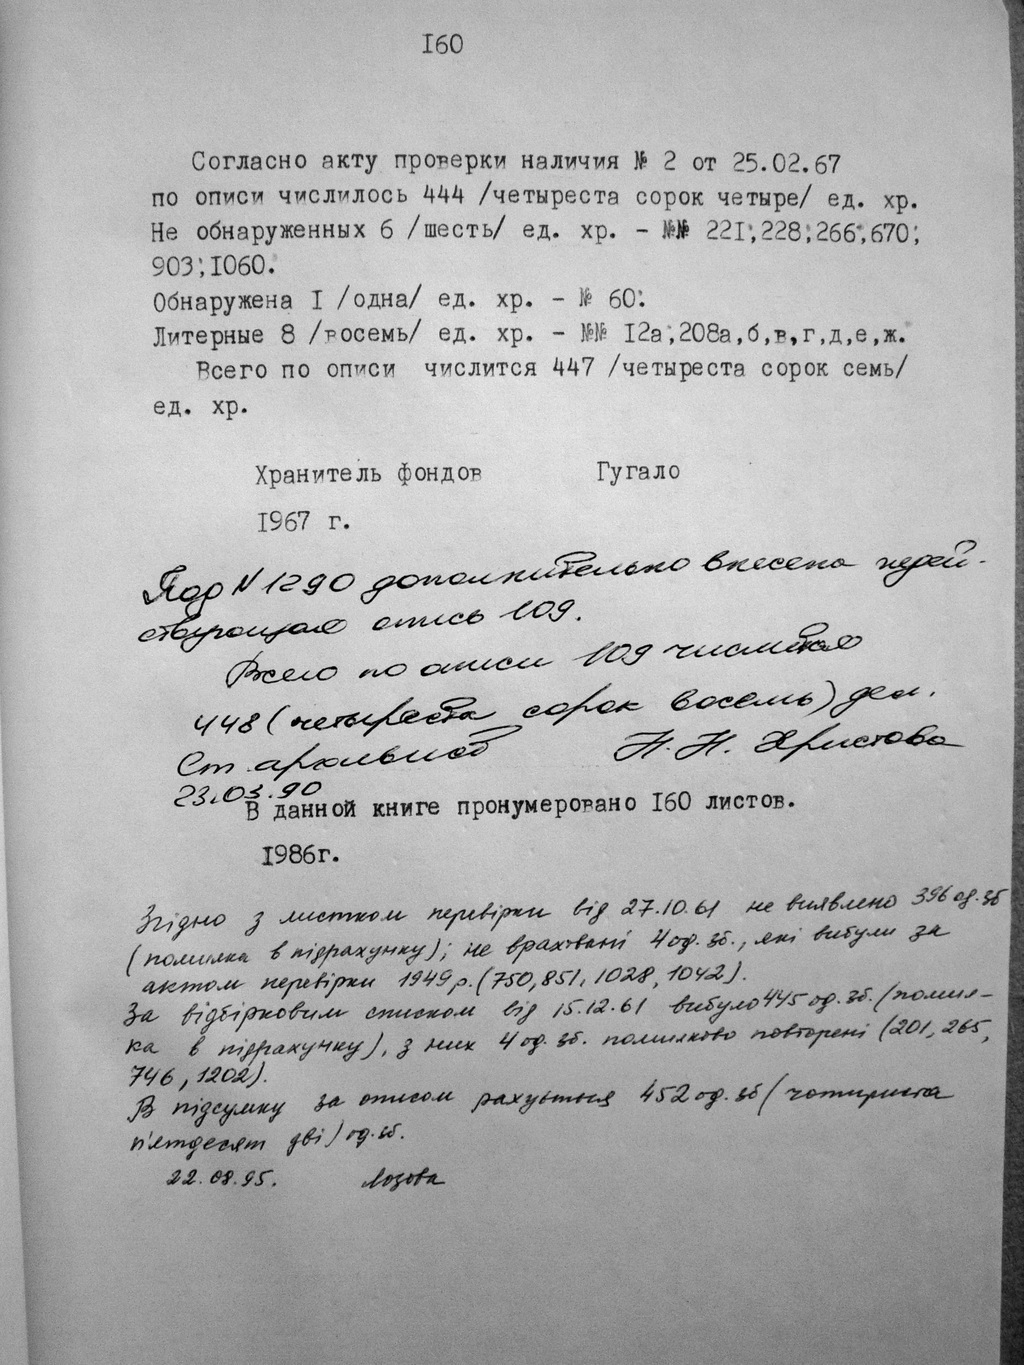 160
Согласно акту проверки наличия № 2 от 25.02.67
по описи числилось 444 /четыреста сорок четыре/ ед. хр.
Не обнаруженных 6 /шесть/ ед. хр. - №№ 221,228,266,670,
903,1060.
Обнаружена I /одна/ ед. хр. - № 60.
Литерные 8 /восемь/ ед. хр. - №№ 12а,208а,б,в,г,д,е,ж.
Всего по описи числится 447 /четыреста сорок семь/
ед. хр.
Хранитель фондов Гугало
1967 г.
Под N 1290 дополнительно внесена недей-
ствующая опись 109.
Всего по описи 109 числится
448 (четыреста сорок восемь) дел.
Ст. архивист Н. Н. Христова
23.03.90
В данной книге пронумеровано 160 листов.
1986г.
Згідно з листком перевірки від 27.10.61 не виявлено 396 од. зб
(помилка в підрахунку); не враховані 4 од. зб., які вибули за
актом перевірки 1949 р. (750, 851, 1028, 1042).
За відбірковим списком від 15.12.61 вибуло 445 од. зб. (помил-
ка в підрахунку), з них 4 од. зб. помилково повторені (201, 265,
746, 1202).
В підсумку за описом рахується 452 од. зб (чотириста
п'ятдесят дві) од. зб.
22.08.95. Лозова